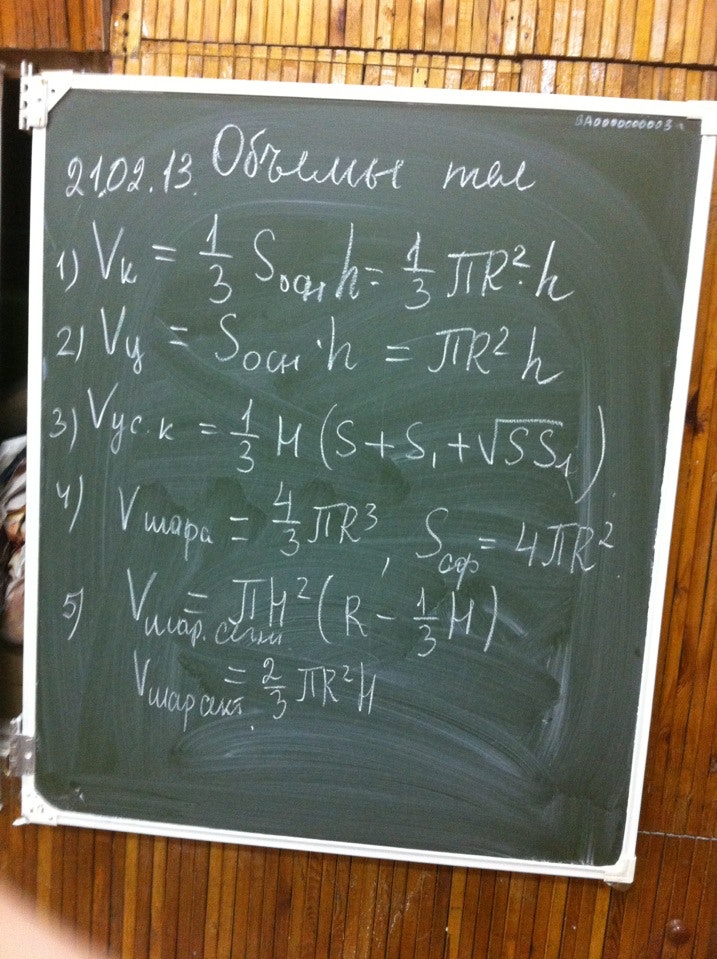 ВА0000000003
21.02.13. Объемы тел
1) Vк = 1/3 Sосн h = 1/3 πR²·h
2) Vц = Sосн·h = πR²h
3) Vус.к = 1/3 H (S + S₁ + √SS₁)
4) Vшара = 4/3 πR³, Sсф = 4πR²
5) Vшар.сегм. = πH² (R - 1/3 H)
Vшар сект. = 2/3 πR²H